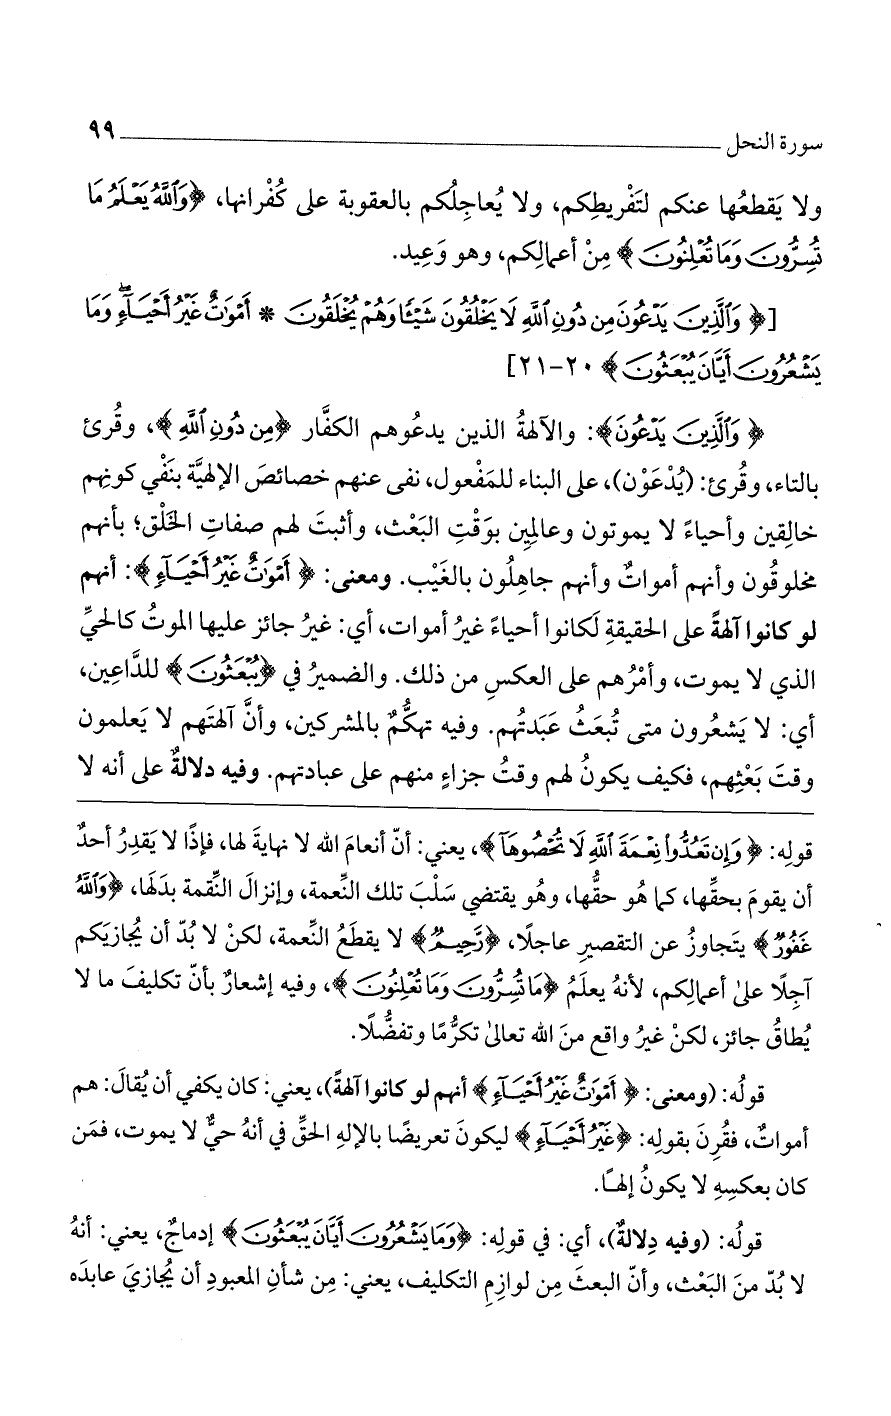 سورة النحل ٩٩
ولا يَقطعُها عنكم لتَفْريطِكم، ولا يُعاجِلُكم بالعقوبة على كُفْرانها، ﴿وَٱللَّهُ يَعْلَمُ مَا
تُسِرُّونَ وَمَا تُعْلِنُونَ﴾ مِنْ أعمالِكم، وهو وَعِيد.
[﴿وَٱلَّذِينَ يَدْعُونَ مِن دُونِ ٱللَّهِ لَا يَخْلُقُونَ شَيْئًا وَهُمْ يُخْلَقُونَ * أَمْوَٰتٌ غَيْرُ أَحْيَآءٍۖ وَمَا
يَشْعُرُونَ أَيَّانَ يُبْعَثُونَ﴾ ٢٠-٢١]
﴿وَٱلَّذِينَ يَدْعُونَ﴾: والآلهةُ الذين يدعُوهم الكفَّار ﴿مِن دُونِ ٱللَّهِ﴾، وقُرئ
بالتاء، وقُرئ: (يُدْعَوْن)، على البناء للمَفْعول، نفى عنهم خصائصَ الإلهيَّة بنَفْي كونِهم
خالِقين وأحياءً لا يموتون وعالِمِين بوَقْتِ البَعْث، وأثبتَ لهم صفاتِ الخَلْق؛ بأنهم
مخلوقُون وأنهم أمواتٌ وأنهم جاهِلُون بالغَيْب. ومعنى: ﴿أَمْوَٰتٌ غَيْرُ أَحْيَآءٍ﴾: أنهم
لو كانوا آلهةً على الحقيقةِ لَكانوا أحياءً غيرُ أموات، أي: غيرُ جائز عليها الموتُ كالحيِّ
الذي لا يموت، وأمْرُهم على العكسِ من ذلك. والضميرُ في ﴿يُبْعَثُونَ﴾ للدَّاعِين،
أي: لا يَشعُرون متى تُبعَثُ عَبَدتُهم. وفيه تهكُّمٌ بالمشركين، وأنَّ آلهتَهم لا يَعلمون
وقتَ بَعْثِهم، فكيف يكونُ لهم وقتُ جزاءٍ منهم على عبادتهم. وفيه دلالةٌ على أنه لا
قولِه: ﴿وَإِن تَعُدُّوا۟ نِعْمَةَ ٱللَّهِ لَا تُحْصُوهَآ﴾، يعني: أنّ أنعامَ الله لا نهايةَ لها، فإذًا لا يَقدِرُ أحدٌ
أن يقومَ بحقِّها، كما هُو حقُّها، وهُو يقتضي سَلْبَ تلك النِّعمة، وإنزالَ النِّقمة بدَلَها، ﴿وَٱللَّهُ
غَفُورٌ﴾ يتَجاوزُ عن التقصيرِ عاجلًا، ﴿رَّحِيمٌ﴾ لا يقطَعُ النِّعمة، لكنْ لا بُدّ أن يُجازيَكم
آجِلًا علىٰ أعمالِكم، لأنهُ يعلَمُ ﴿مَا تُسِرُّونَ وَمَا تُعْلِنُونَ﴾، وفيه إشعارٌ بأنّ تكليفَ ما لا
يُطاقُ جائز، لكنْ غيرُ واقع منَ الله تعالىٰ تكرُّمًا وتفضُّلًا.
قولُه: (ومعنى: ﴿أَمْوَٰتٌ غَيْرُ أَحْيَآءٍ﴾ أنهم لو كانوا آلهةً)، يعني: كان يكفي أن يُقالَ: هم
أمواتٌ، فقُرِنَ بقولِه: ﴿غَيْرُ أَحْيَآءٍ﴾ ليكونَ تعريضًا بالإلهِ الحقِّ في أنهُ حيٌّ لا يموت، فمَن
كان بعكسِهِ لا يكونُ إلهًا.
قولُه: (وفيه دِلالةٌ)، أي: في قولِه: ﴿وَمَا يَشْعُرُونَ أَيَّانَ يُبْعَثُونَ﴾ إدماجٌ، يعني: أنهُ
لا بُدّ منَ البَعْث، وأنّ البعثَ مِن لوازِمِ التكليف، يعني: مِن شأنِ المعبودِ أن يُجازيَ عابدَه